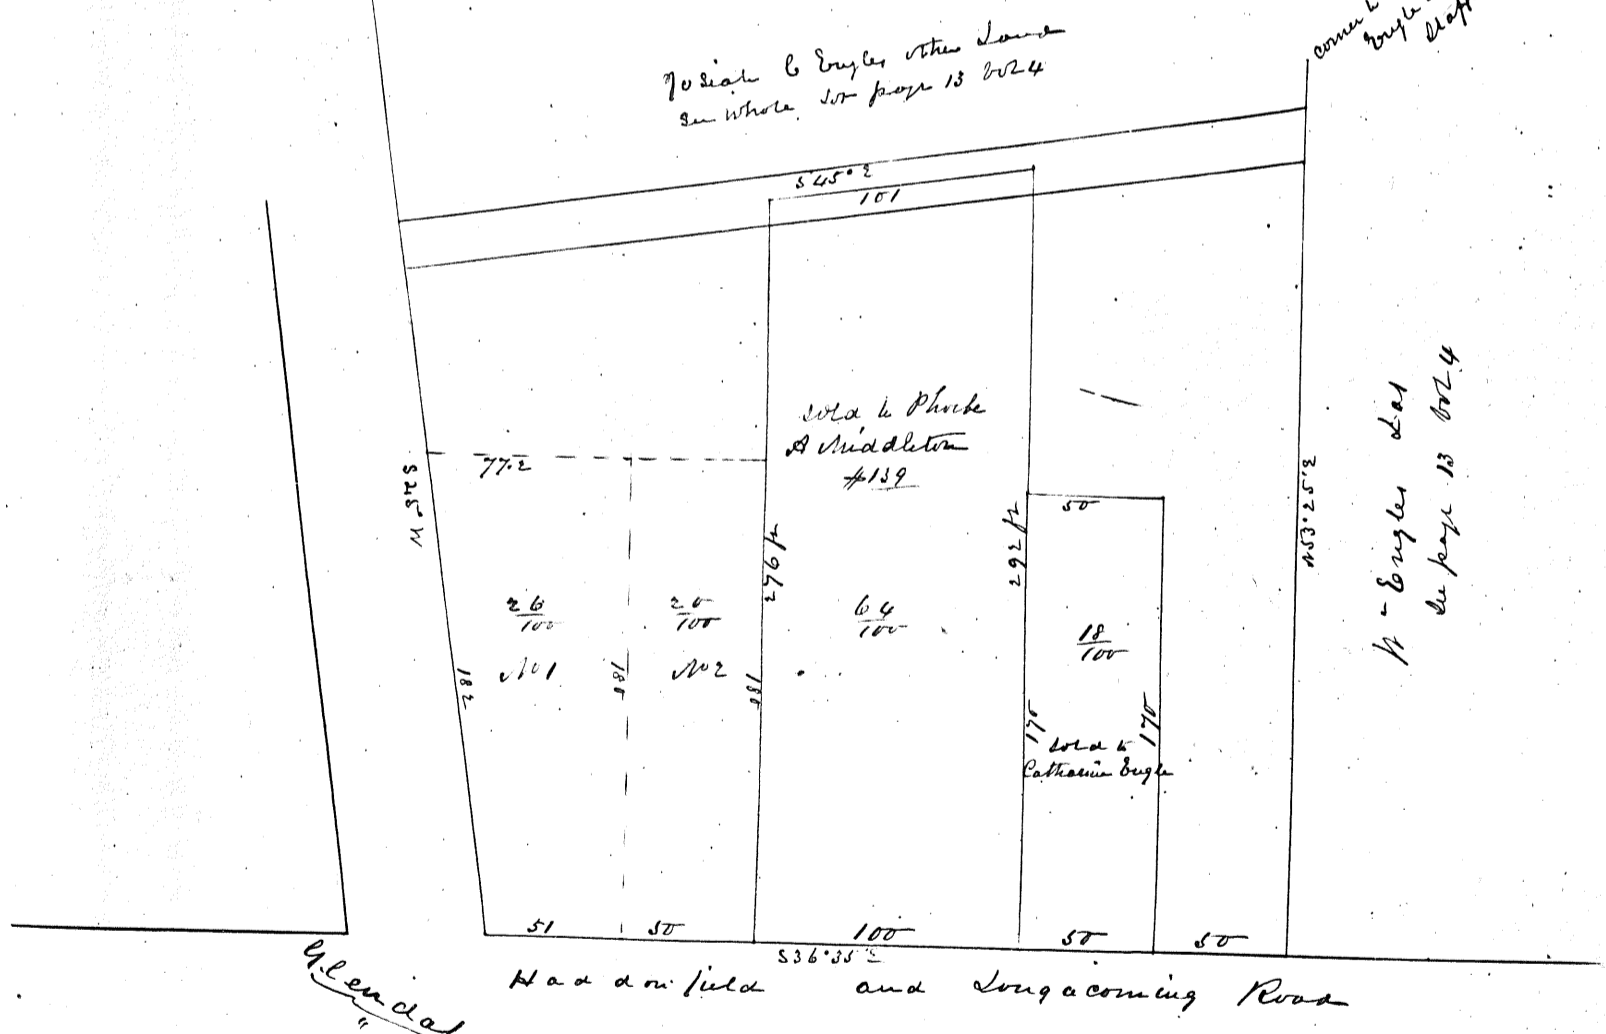 Josiah C Engles other Land
See whole Lot page 13 Vol 4
corner to
Engle
S 45° E
101
sold to Phoebe
A Middleton
#139
77.2
50
S 28° W
276 ft
292 ft
N 53° 25' E
Engles Lot
See page 13 Vol 4
26/100
20/100
64/100
18/100
No 1
No 2
182
180
180
170
170
sold to
Catharine Engle
51
50
100
50
50
S 36° 35' E
Haddonfield and Longacoming Road
Glendal